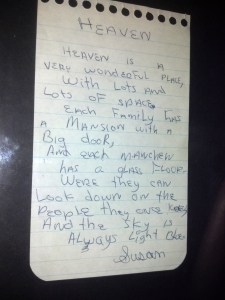 HEAVEN
HEAVEN IS A
VERY WONDERFUL PLACE,
WITH LOTS AND
LOTS OF SPACE.
EACH FAMILY HAS
A MANSION WITH A
BIG DOOR,
AND EACH MANCHEN
HAS A GLASS FLOOR.
WERE THEY CAN
LOOK DOWN ON THE
PEOPLE THEY ONCE
AND THE SKY IS
ALWAYS LIGHT BLUE.
Susan